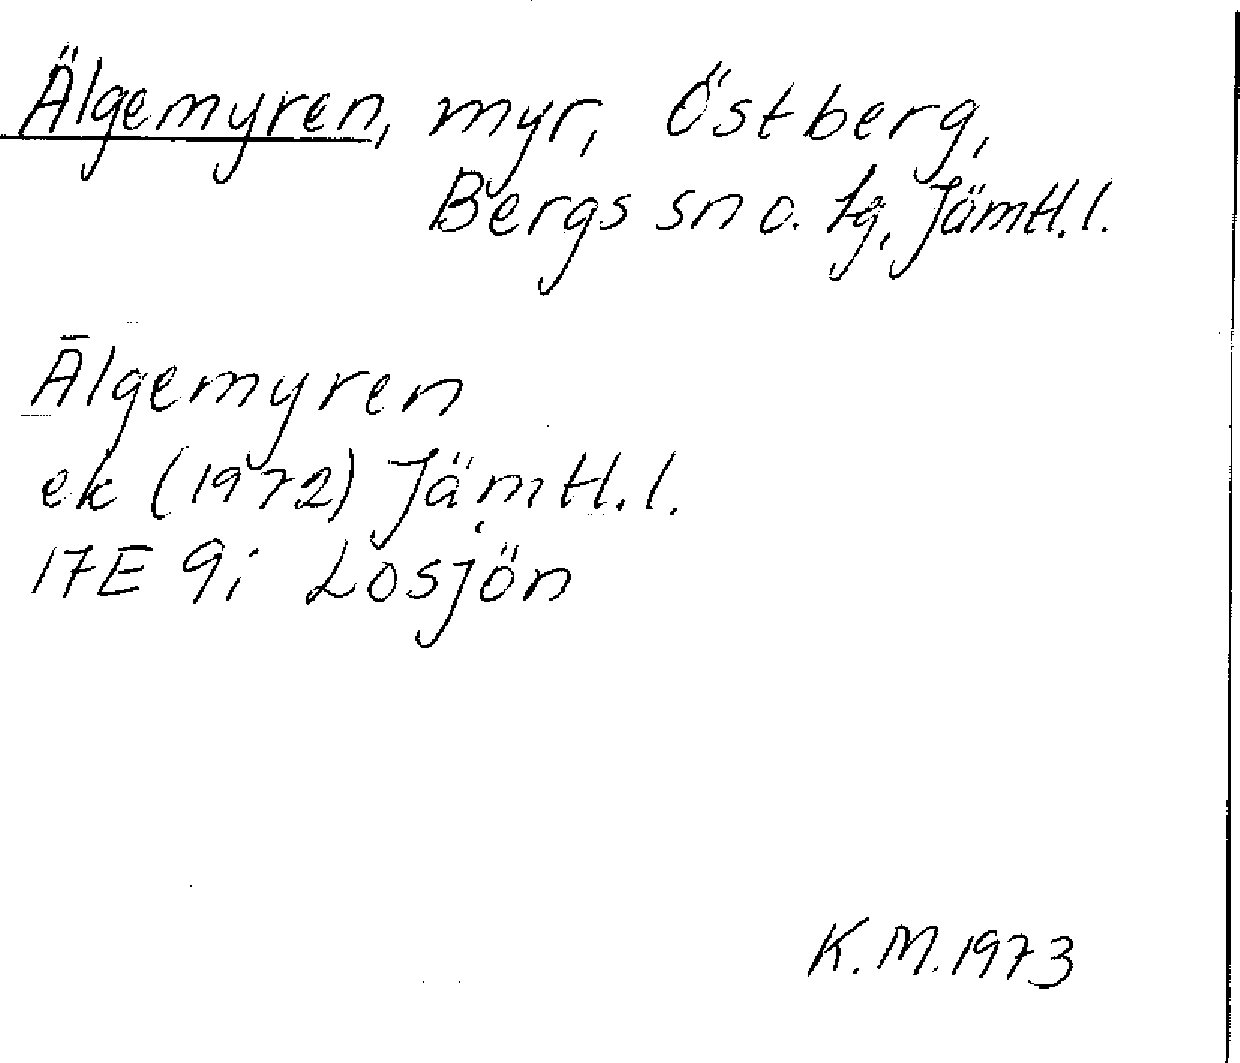 Älgemyren, myr, Östberg,
Bergs sn o. tg, Jämtl. l.
Älgemyren
ek (1972) Jämtl. l.
17E 9i Losjön
K. M. 1973